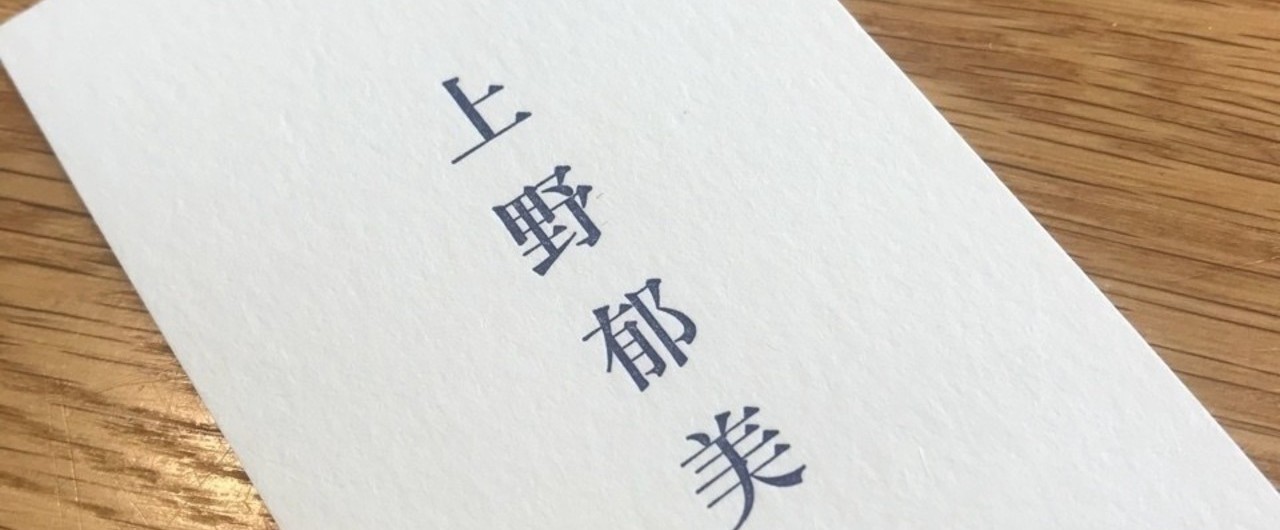 上野郁美